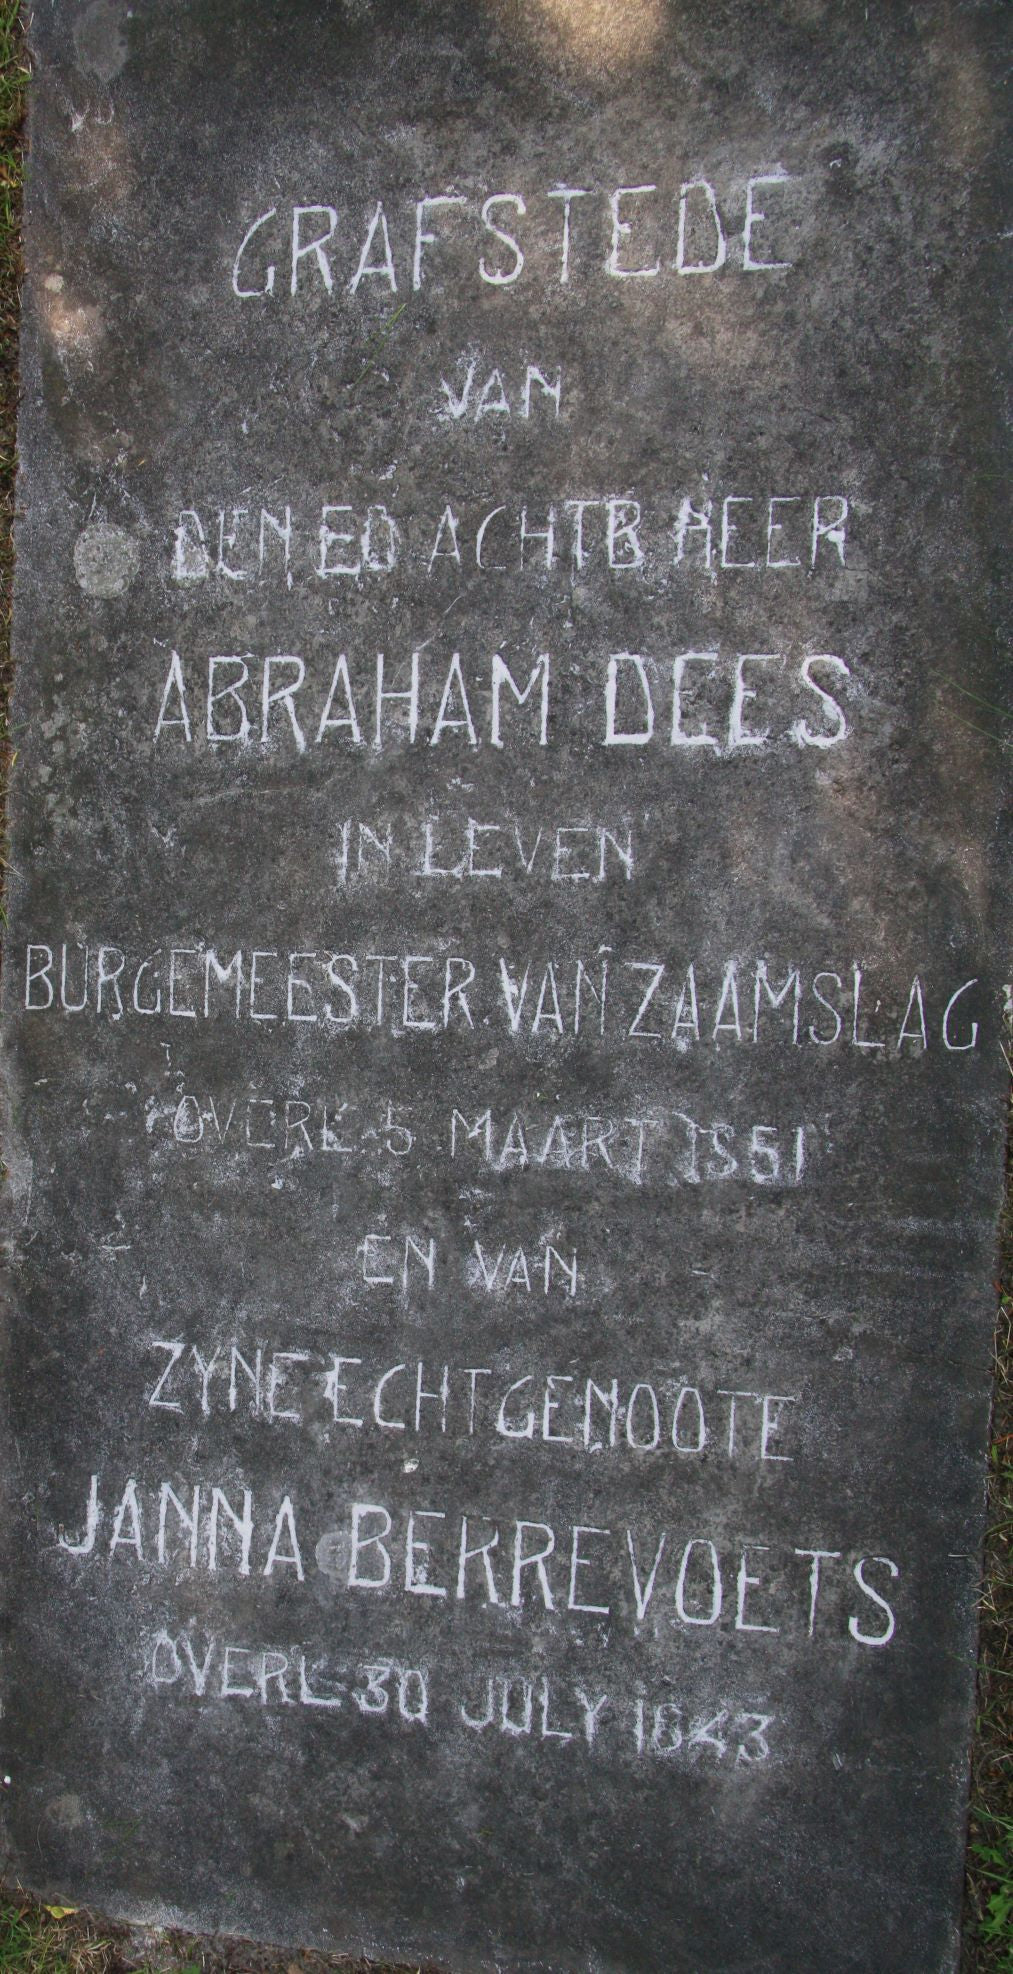 GRAFSTEDE
VAN
DEN ED ACHTB HEER
ABRAHAM DEES
IN LEVEN
BURGEMEESTER VAN ZAAMSLAG
OVERL 5 MAART 1851
EN VAN
ZYNE ECHTGENOOTE
JANNA BERREVOETS
OVERL 30 JULY 1843